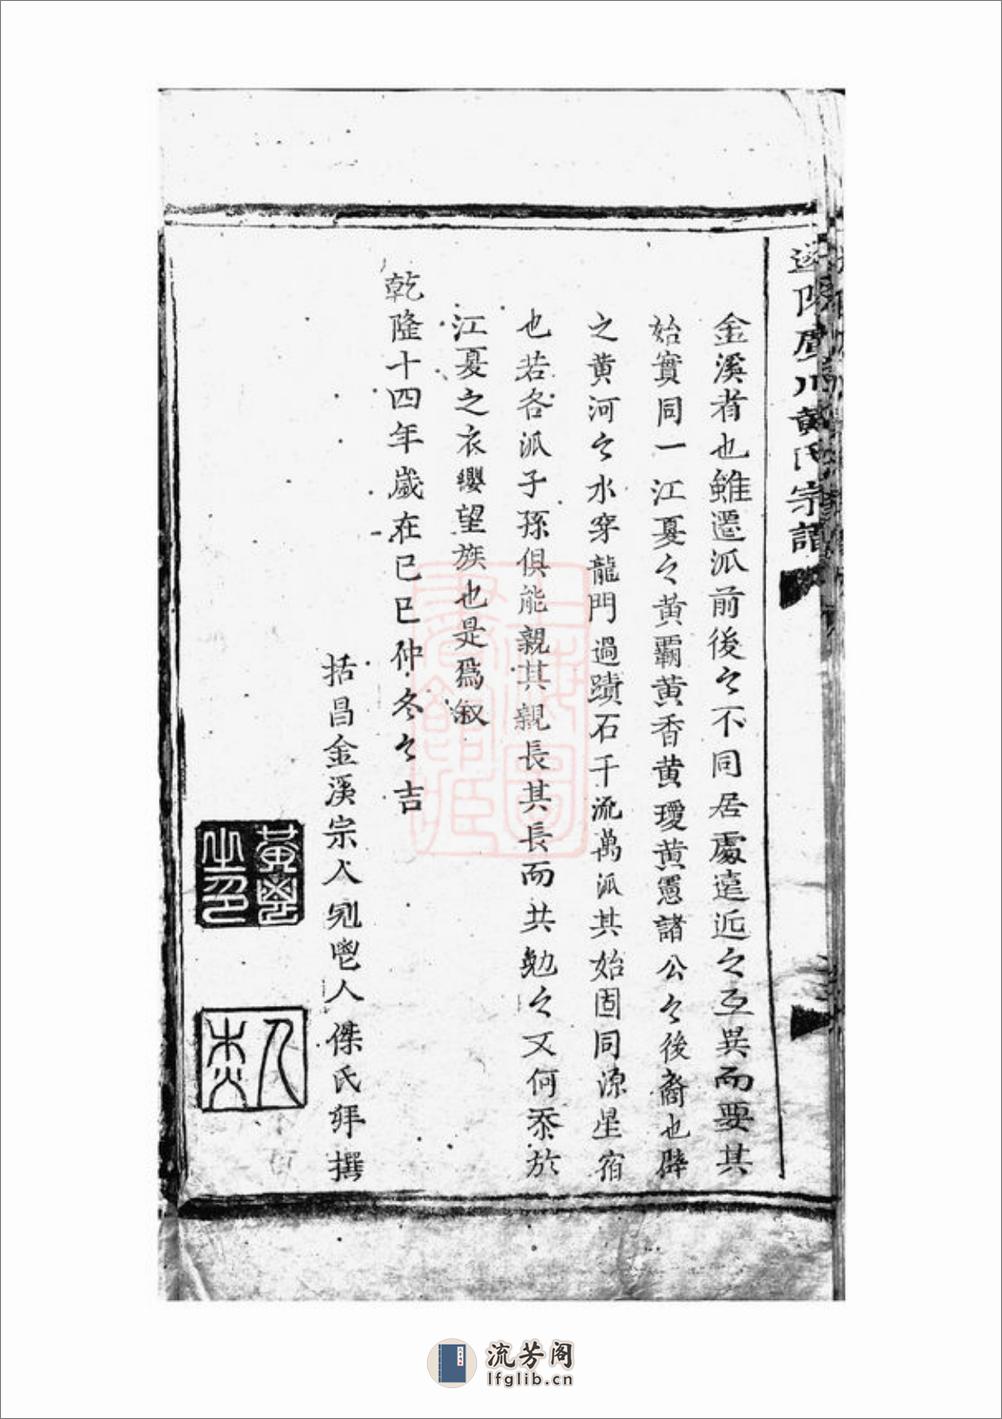 金溪者也雖遷派前後之不同居處遠近之互異而要其
始實同一江夏之黄霸黄香黄瓊黄憲諸公之後裔也辟
之黄河之水穿龍門過蹟石千流萬派其始固同源星宿
也若各派子孫俱能親其親長其長而共勉之又何忝於
江夏之衣纓望族也是爲叙
乾隆十四年歲在己巳仲冬之吉
括昌金溪宗人 人傑氏拜撰
川黄氏宗譜
黄 之印
人杰
上海圖書館
流芳阁
lfglib.cn